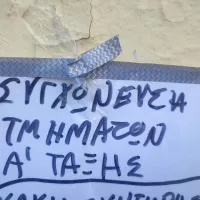 ΣΥΓΧΩΝΕΥΣΗ
ΤΜΗΜΑΤΩΝ
Α' ΤΑΞΗΣ